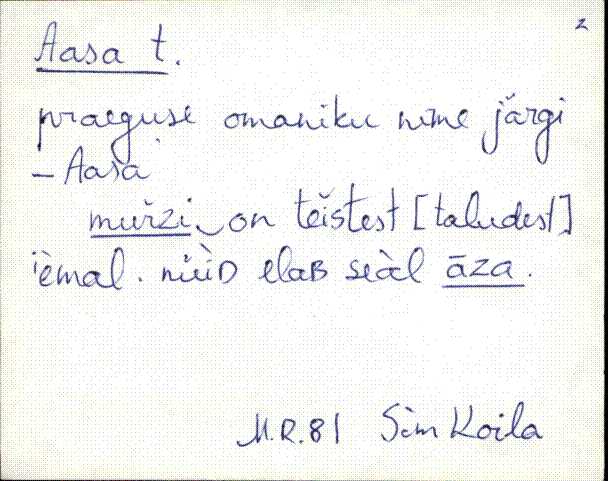 2
Aasa t.
praeguse omaniku nime järgi
– Aasa
muřzi on tèistest [taludest]
èemal. nüùD elaB seàl āza.
M.R.81 Sim Koila